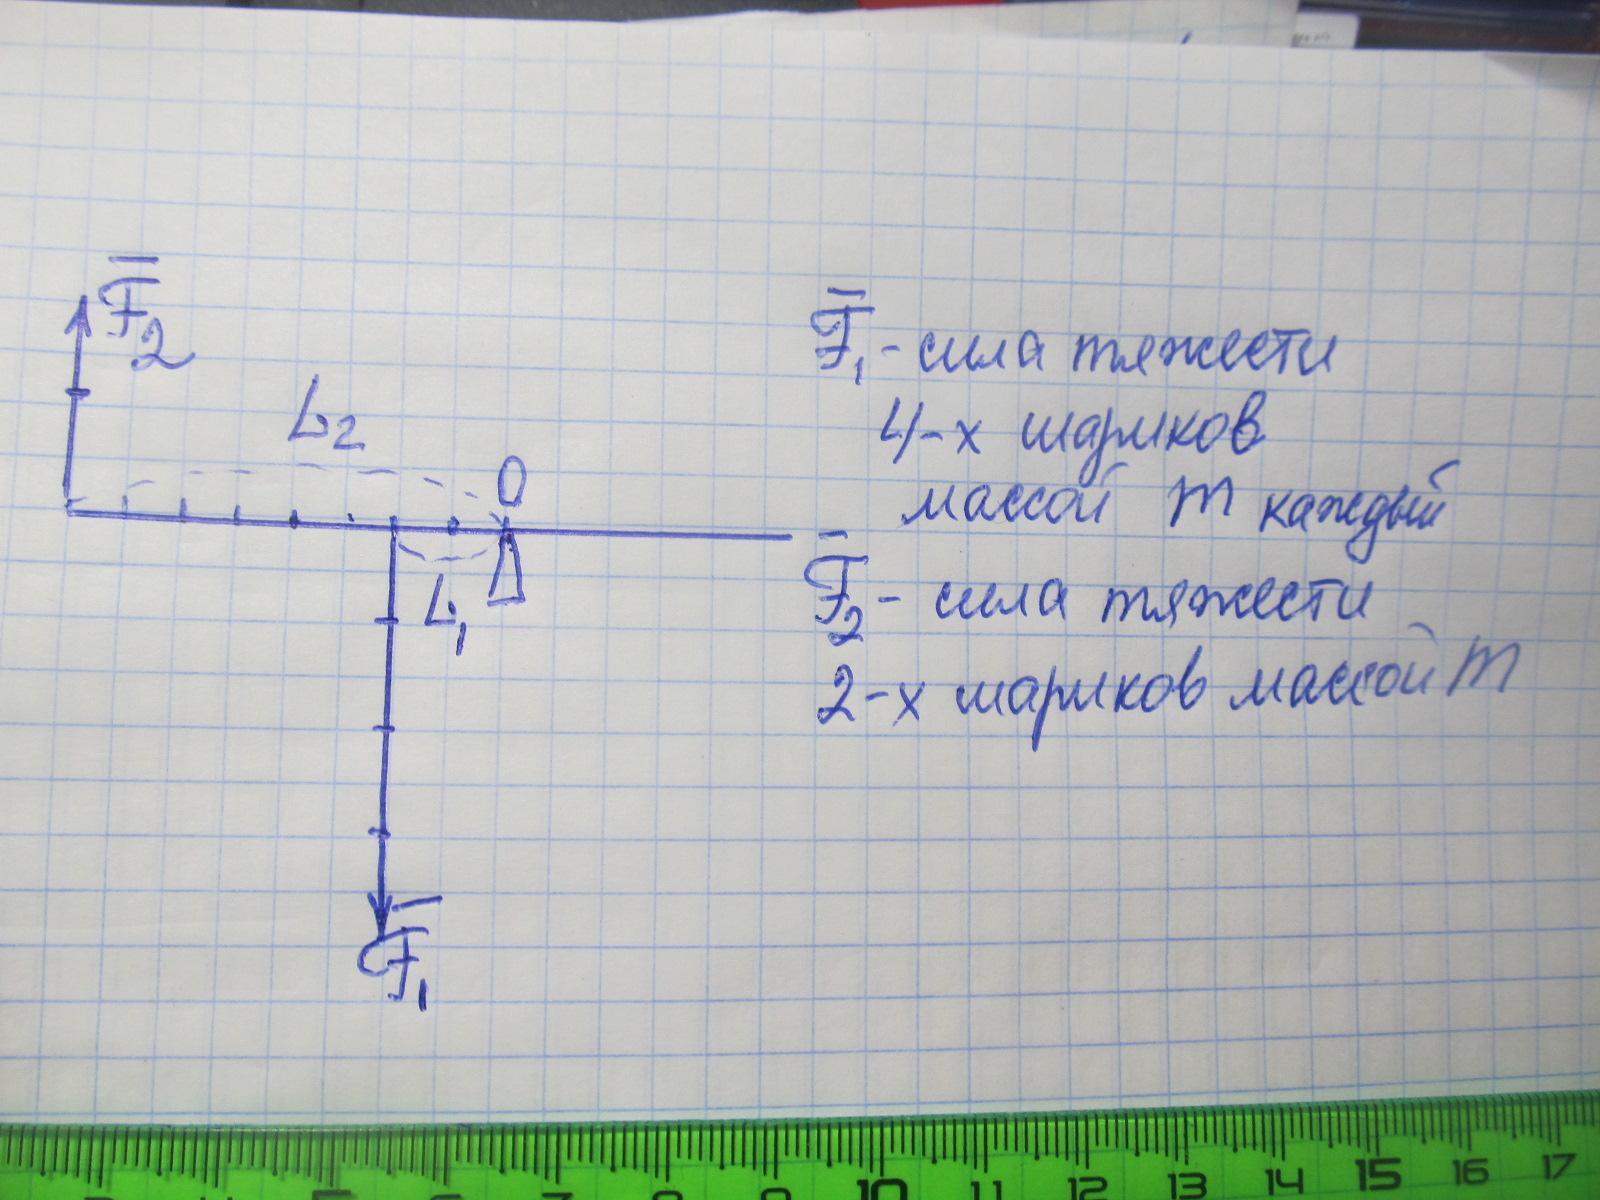 F̅₂
L₂
O
L₁
F̅₁
F̅₁ - сила тяжести
4-х шариков
массой m каждый
F̅₂ - сила тяжести
2-х шариков массой m
10 11 12 13 14 15 16 17